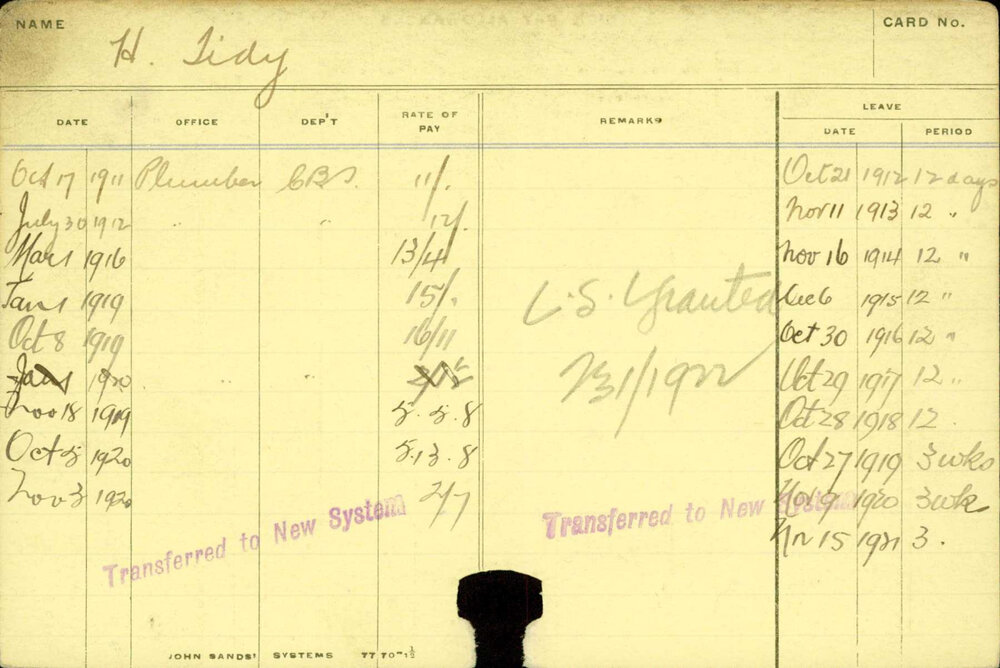 NAME
CARD No.
H. Tidy
DATE OFFICE DEP'T RATE OF PAY REMARKS LEAVE
DATE PERIOD
Oct 17 1911 Plumber 11/. Oct 21 1912 12 days
July 30 1912 " " 12/. Nov 11 1913 12 "
Mar 1 1916 13/4 Nov 16 1914 12 "
Jan 1 1919 15/. Dec 6 1915 12 "
L.S. Granted
Oct 8 1919 16/11 Oct 30 1916 12 "
Jan 1 1920 Oct 29 1917 12 "
23/1/1922
Nov 18 1919 5.5.8 Oct 28 1918 12
Oct 5 1920 5.13.8 Oct 27 1919 3 wks
Nov 3 1920 2/7 Nov 9 1920 3 wks
Transferred to New System
Transferred to New System
Nv 15 1921 3.
JOHN SANDS' SYSTEMS 7770-½